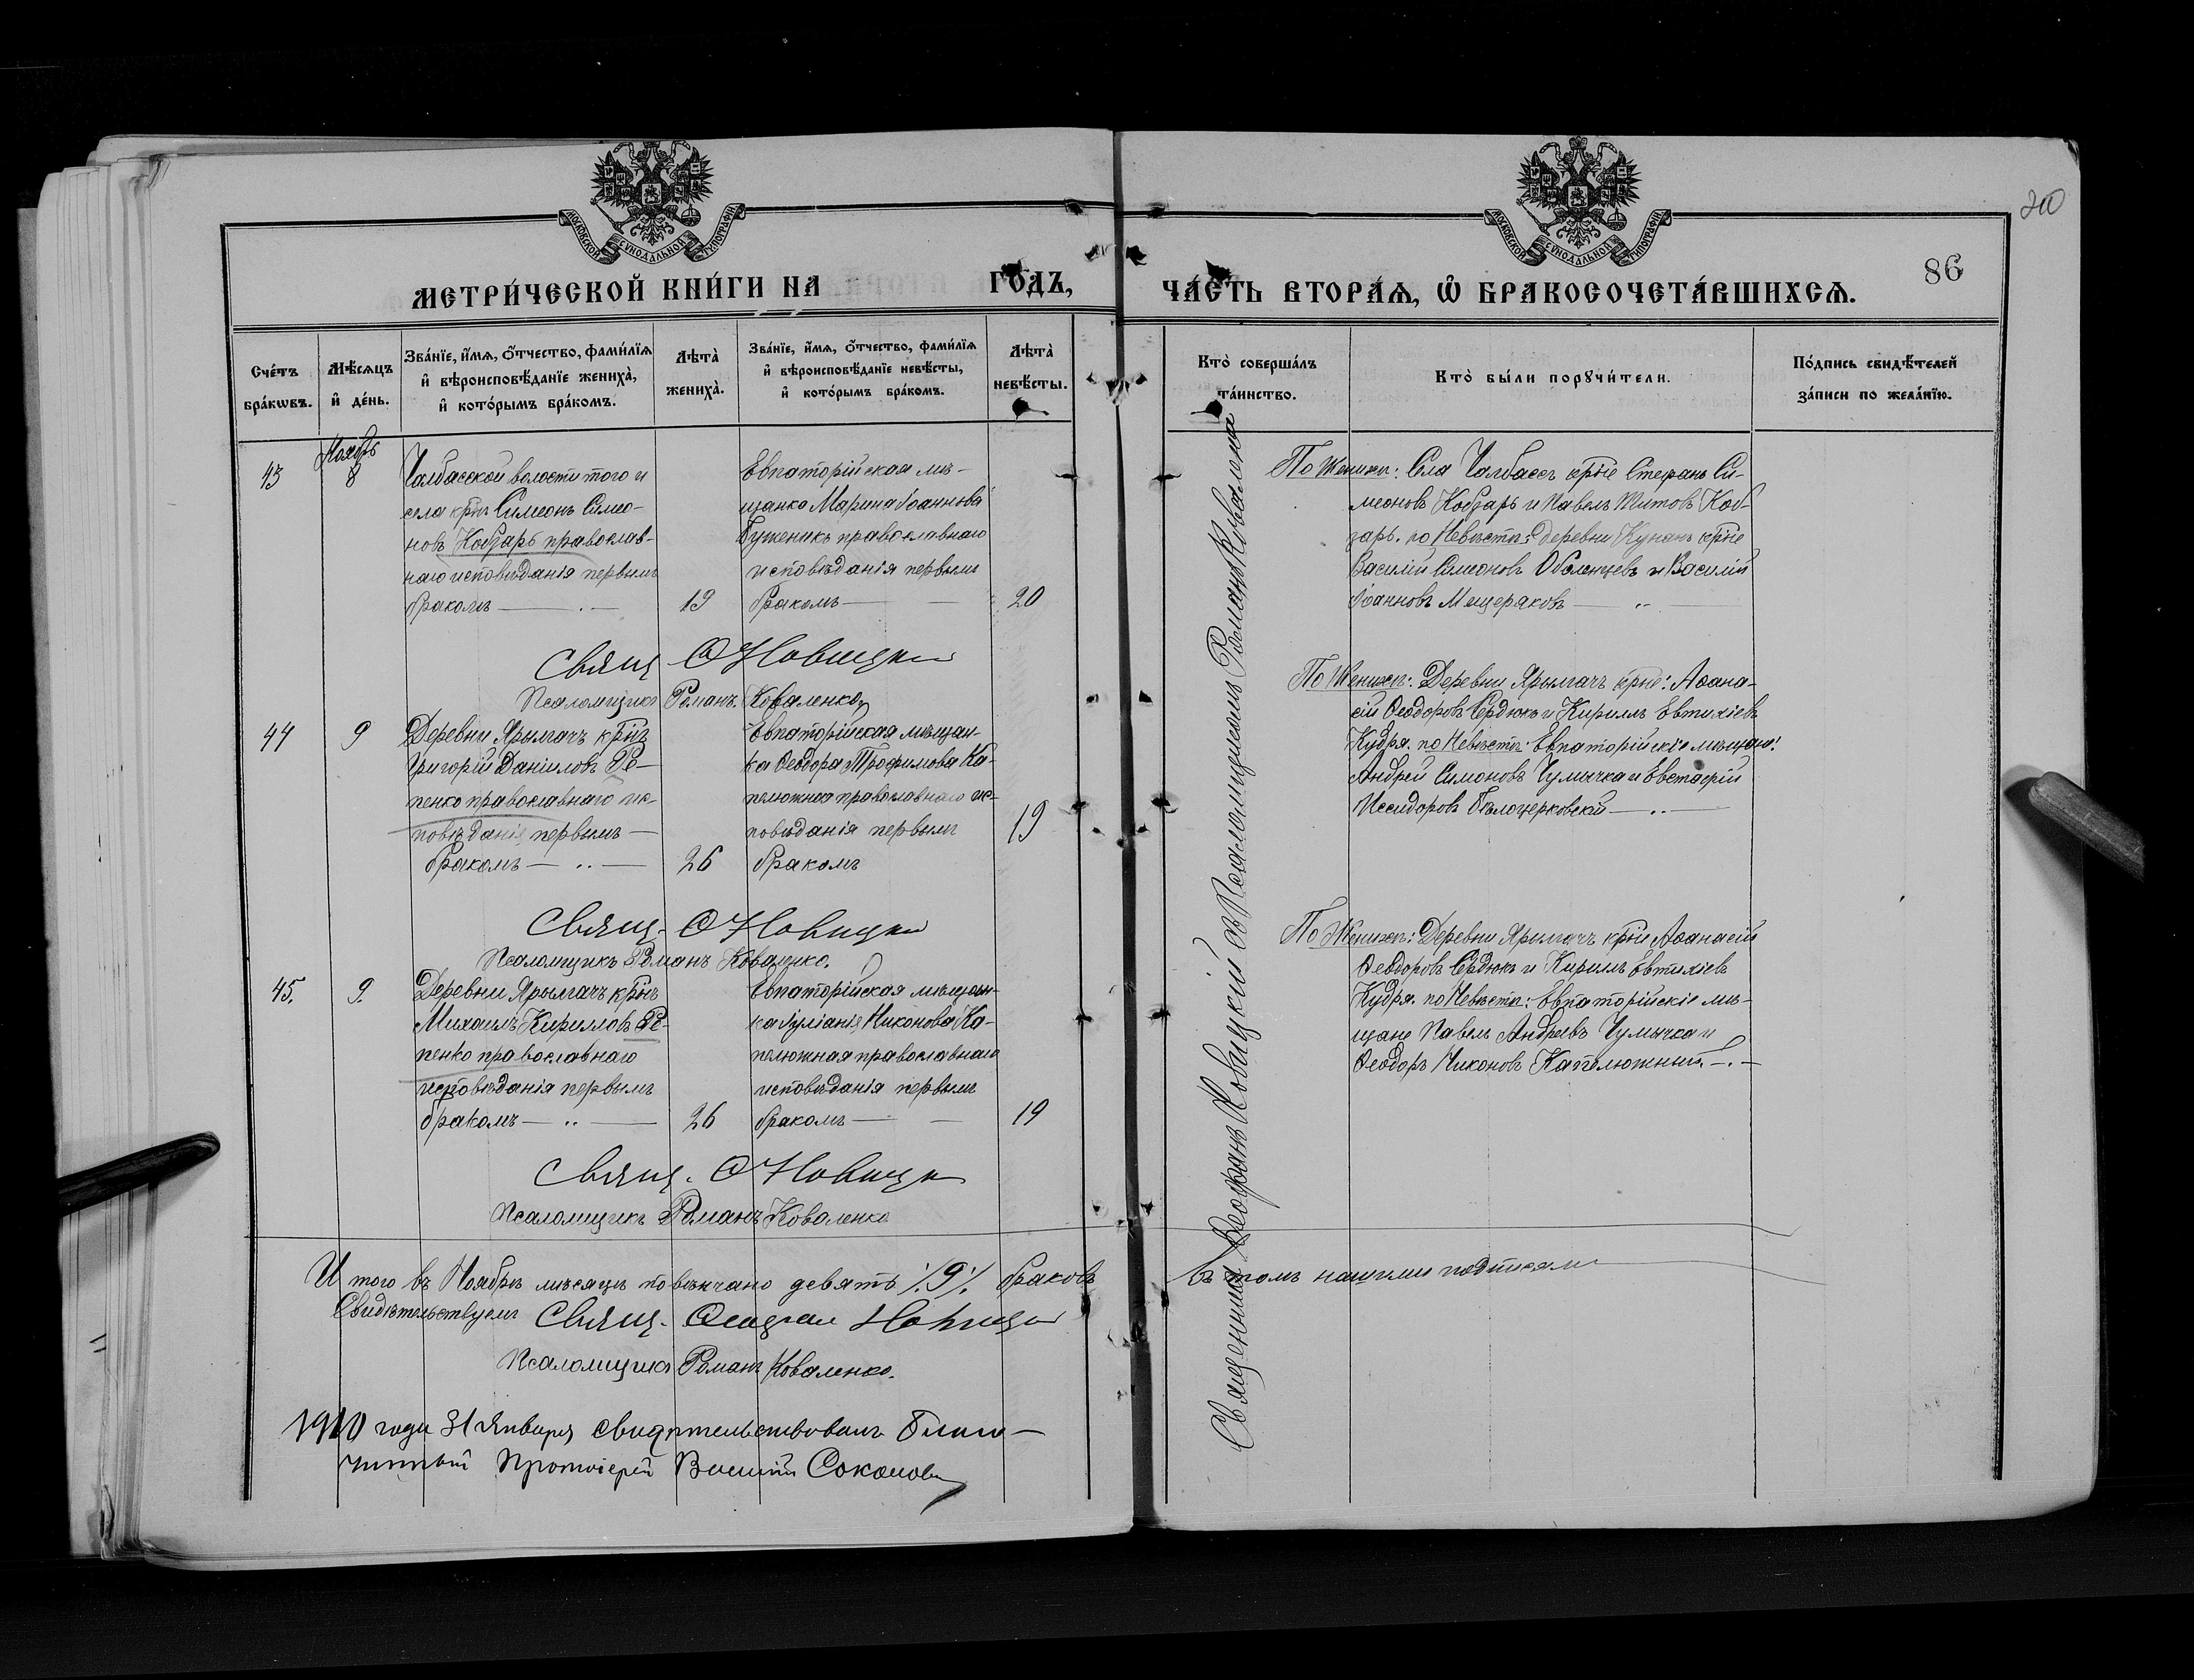 МОСКОВСКОЙ СѴНОДАЛЬНОЙ ТИПОГРАФІИ
МЕТРИ́ЧЕСКОЙ КНИ́ГИ НА ГО́ДЪ,
Сче́тъ бра́кѡвъ.
Мѣ́сяцъ и҆ де́нь.
Зва́нїе, и҆́мѧ, ѻ҆́тчество, фами́лїѧ
и҆ вѣроисповѣ́данїе жениха̀,
и҆ кото́рымъ бра́комъ.
Лѣта̀ жениха̀.
Зва́нїе, и҆́мѧ, ѻ҆́тчество, фами́лїѧ
и҆ вѣроисповѣ́данїе невѣ́сты,
и҆ кото́рымъ бра́комъ.
Лѣта̀ невѣ́сты.
Ноябрь
43
8
Чалбасской волости того и
села крнъ Симеонъ Симео-
новъ Кобзарь православ-
наго исповѣданія первымъ
бракомъ
19
Евпаторійская мѣ-
щанка Марина Іоаннова
православнаго
исповѣданія первымъ
бракомъ
20
Свящ. Ѳ Новицкій
Псаломщикъ Романъ Коваленко
44
9
Деревни Ярылгачъ крнъ
Григорій Даніиловъ Ре-
пенко православнаго ис-
повѣданія первымъ
бракомъ
26
Евпаторійская мѣщан-
ка Ѳеодора Трофимова Ка-
пелюжная православнаго ис-
повѣданія первымъ
бракомъ
19
Свящ. Ѳ Новицкій
Псаломщикъ Романъ Коваленко.
45.
9.
Деревни Ярылгачъ крнъ
Михаилъ Кирилловъ Ре-
пенко православнаго
исповѣданія первымъ
бракомъ
26
Евпаторійская мѣщан-
ка Іуліанія Никонова Ка-
пелюжная православнаго
исповѣданія первымъ
бракомъ
19
Свящ. Ѳ Новицкій
Псаломщикъ Романъ Коваленко
Итого въ Ноябрѣ мѣсяцѣ повѣнчано девять /9/ браковъ
Свидѣтельствуемъ Свящ. Новицкій
Псаломщикъ Романъ Коваленко.
1910 года 31 Января свидѣтельствовалъ Благо-
чинный Протоіерей Василій Соколовъ
200
МОСКОВСКОЙ СѴНОДАЛЬНОЙ ТИПОГРАФІИ
86
ЧА́СТЬ ВТОРА́Ѧ, Ѡ҆ БРАКОСОЧЕТА́ВШИХСѦ.
Кто̀ соверша́лъ та́инство.
Кто̀ бы́ли порꙋчи́тели.
По́дпись свидѣ́телей
за́писи по жела́нїю.
Священникъ Ѳеофанъ Новицкій съ Псаломщикомъ Романомъ Коваленко
По Женихѣ: Села Чалбассъ крне Стефанъ Си-
меоновъ Кобзарь и Павелъ Титовъ Коб-
зарь. по Невѣстѣ: деревни Кунанъ крне
Василій Симеоновъ Оболенцевъ и Василій
Іоанновъ Мещеряковъ
По Женихѣ: Деревни Ярылгачъ крне: Аѳана-
сій Ѳеодоровъ Сердюкъ и Кириллъ Евтихіевъ
Кудря. по Невѣстѣ: Евпаторійскіе мѣщане:
Андрей Симоновъ Чумычка и Евстафій
Исидоровъ Бѣлоцерковскій
По Женихѣ: Деревни Ярылгачъ крне Аѳанасій
Ѳеодоровъ Сердюкъ и Кириллъ Евтихіевъ
Кудря. по Невѣстѣ: Евпаторійскіе мѣ-
щане Павелъ Андреевъ Чумычка и
Ѳеодоръ Никоновъ Капелюжный.
Въ томъ нашими подписями